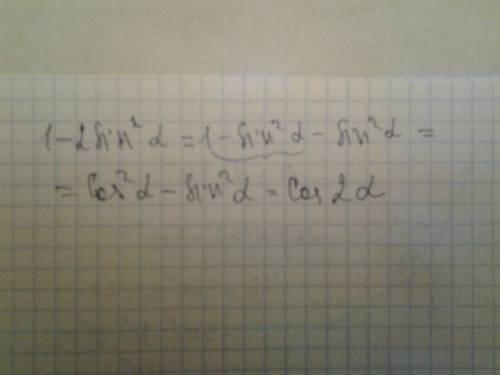 1 - 2 sin² α = 1 - sin² α - sin² α =
= cos² α - sin² α = cos 2 α